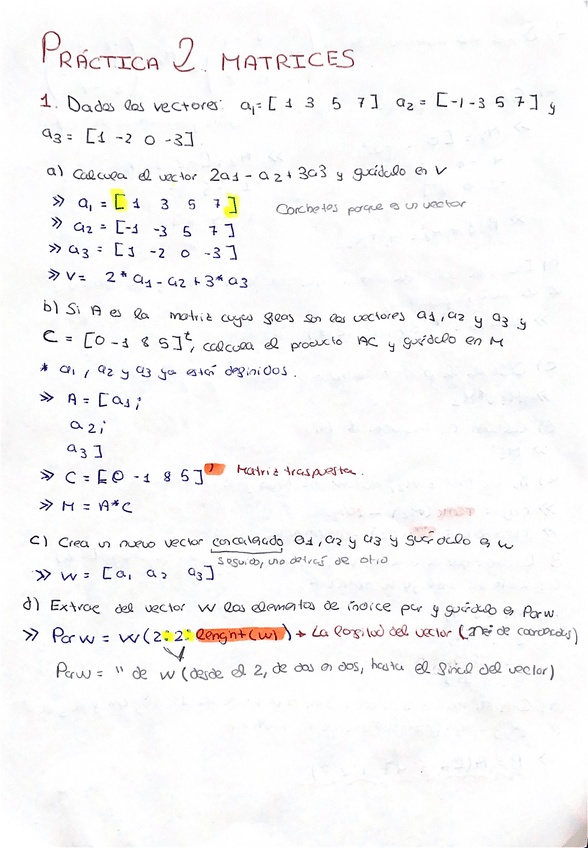 PRÁCTICA 2. MATRICES
1. Dados los vectores: a1 = [ 1 3 5 7 ] a2 = [-1 -3 5 7] y
a3 = [1 -2 0 -3]
a) Calcula el vector 2a1 - a2 + 3a3 y guárdalo en V
>> a1 = [ 1 3 5 7 ] Corchetes porque es un vector
>> a2 = [-1 -3 5 7]
>> a3 = [1 -2 0 -3]
>> V = 2* a1 - a2 + 3* a3
b) Si A es la matriz cuyas filas son los vectores a1, a2 y a3 y
C = [0 -1 8 5]t, calcula el producto AC y guárdalo en M
* a1, a2 y a3 ya están definidos.
>> A = [a1;
a2;
a3]
>> C = [0 -1 8 5]' Matriz traspuesta.
>> M = A*C
c) Crea un nuevo vector concatenado a1, a2 y a3 y guárdalo en w
Seguido, uno detrás de otro
>> w = [a1 a2 a3]
d) Extrae del vector w los elementos de índice par y guárdalo en Parw.
>> Parw = w(2:2:lenght(w)) → La longitud del vector (nº de coordenadas)
Parw = " de w (desde el 2, de dos en dos, hasta el final del vector)